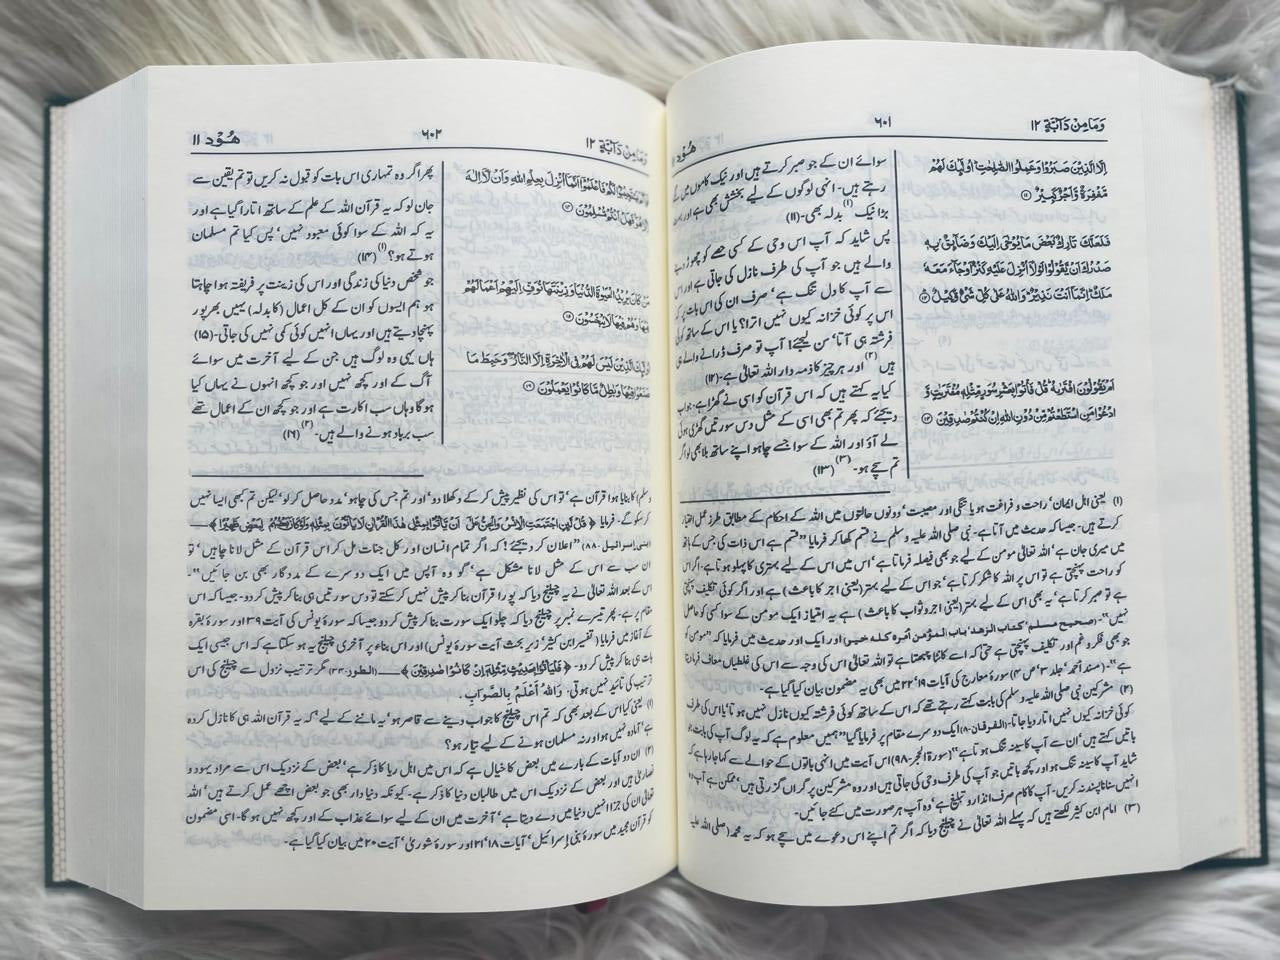 وَمَا مِنْ دَآبَّةٍ ۱۲
۶۰۱
هُوْد ۱۱
اِلَّا الَّذِيْنَ صَبَرُوْا وَعَمِلُوا الصّٰلِحٰتِ ۭ اُولٰۗىِٕكَ لَهُمْ
مَّغْفِرَةٌ وَّاَجْرٌ كَبِيْرٌ ۱۱
فَلَعَلَّكَ تَارِكٌۢ بَعْضَ مَا يُوْحٰٓى اِلَيْكَ وَضَاۗىِٕقٌۢ بِهٖ
صَدْرُكَ اَنْ يَّقُوْلُوْا لَوْلَآ اُنْزِلَ عَلَيْهِ كَنْزٌ اَوْ جَاۗءَ مَعَهٗ
مَلَكٌ ۭ اِنَّمَآ اَنْتَ نَذِيْرٌ ۭ وَاللّٰهُ عَلٰي كُلِّ شَيْءٍ وَّكِيْلٌ ۱۲
اَمْ يَقُوْلُوْنَ افْتَرٰىهُ ۭ قُلْ فَاْتُوْا بِعَشْرِ سُوَرٍ مِّثْلِهٖ مُفْتَرَيٰتٍ وَّ
ادْعُوْا مَنِ اسْتَطَعْتُمْ مِّنْ دُوْنِ اللّٰهِ اِنْ كُنْتُمْ صٰدِقِيْنَ ۱۳
سوائے ان کے جو صبر کرتے ہیں اور نیک کاموں میں لگے
رہتے ہیں۔ انہی لوگوں کے لیے بخشش بھی ہے اور بہت
بڑا نیک (۱) بدلہ بھی۔ (۱۱)
پس شاید کہ آپ اس وحی کے کسی حصے کو چھوڑ دینے
والے ہیں جو آپ کی طرف نازل کی جاتی ہے اور اس
سے آپ کا دل تنگ ہے، صرف ان کی اس بات پر کہ
اس پر کوئی خزانہ کیوں نہیں اترا؟ یا اس کے ساتھ کوئی
فرشتہ ہی آتا، سن لیجئے! آپ تو صرف ڈرانے والے ہی
ہیں (۲) اور ہر چیز کا ذمہ دار اللہ تعالیٰ ہے۔ (۱۲)
کیا یہ کہتے ہیں کہ اس قرآن کو اسی نے گھڑا ہے۔ جواب
دیجئے کہ پھر تم بھی اسی کے مثل دس سورتیں گھڑی ہوئی
لے آؤ اور اللہ کے سوا جسے چاہو اپنے ساتھ بلا بھی لو اگر
تم سچے ہو۔ (۳) (۱۳)
(۱) یعنی اہل ایمان، راحت و فراغت ہو یا تنگی اور مصیبت، دونوں حالتوں میں اللہ کے احکام کے مطابق طرز عمل اختیار
کرتے ہیں۔ جیسا کہ حدیث میں آتا ہے۔ نبی صلی اللہ علیہ و سلم نے قسم کھا کر فرمایا "قسم ہے اس ذات کی جس کے ہاتھ
میں میری جان ہے، اللہ تعالیٰ مومن کے لیے جو بھی فیصلہ فرماتا ہے، اس میں اس کے لیے بہتری کا پہلو ہوتا ہے۔ اگر اس
کو راحت پہنچتی ہے تو اس پر اللہ کا شکر کرتا ہے، جو اس کے لیے بہتر (یعنی اجر کا باعث) ہے اور اگر کوئی تکلیف پہنچتی
ہے تو صبر کرتا ہے، یہ بھی اس کے لیے بہتر (یعنی اجر و ثواب کا باعث) ہے، یہ امتیاز ایک مومن کے سوا کسی کو حاصل
نہیں"۔ (صحيح مسلم، كتاب الزهد، باب المؤمن أمره كله خير) اور ایک اور حدیث میں فرمایا کہ "مومن کو
جو بھی فکر و غم اور تکلیف پہنچتی ہے حتیٰ کہ اسے کانٹا چبھتا ہے تو اللہ تعالیٰ اس کی وجہ سے اس کی غلطیاں معاف فرما دیتا
ہے"۔ (مسند أحمد، جلد ۳، ص ۴) سورۂ معارج کی آیات ۱۹، ۲۲ میں بھی یہ مضمون بیان کیا گیا ہے۔
(۲) مشرکین نبی صلی اللہ علیہ و سلم کی بابت کہتے رہتے تھے کہ اس کے ساتھ کوئی فرشتہ کیوں نازل نہیں ہوتا، یا اس کی طرف
کوئی خزانہ کیوں نہیں اتار دیا جاتا، (الفرقان۔۸) ایک دوسرے مقام پر فرمایا گیا "ہمیں معلوم ہے کہ یہ لوگ آپ کی بابت جو
باتیں کہتے ہیں، ان سے آپ کا سینہ تنگ ہوتا ہے" (سورۃ الحجر۔۹۸) اس آیت میں انہی باتوں کے حوالے سے کہا جا رہا ہے کہ
شاید آپ کا سینہ تنگ ہو اور کچھ باتیں جو آپ کی طرف وحی کی جاتی ہیں اور وہ مشرکین پر گراں گزرتی ہیں، ممکن ہے آپ وہ
انہیں سنانا پسند نہ کریں۔ آپ کا کام صرف انذار و تبلیغ ہے، وہ آپ ہر صورت میں کئے جائیں۔
(۳) امام ابن کثیر لکھتے ہیں کہ پہلے اللہ تعالیٰ نے چیلنج دیا کہ اگر تم اپنے اس دعوے میں سچے ہو کہ یہ محمد (صلی اللہ علیہ
وَمَا مِنْ دَآبَّةٍ ۱۲
۶۰۲
هُوْد ۱۱
يَسْتَجِيْبُوْا لَكُمْ فَاعْلَمُوْٓا اَنَّمَآ اُنْزِلَ بِعِلْمِ اللّٰهِ وَاَنْ لَّآ اِلٰهَ
اِلَّا هُوَ ۚ فَهَلْ اَنْتُمْ مُّسْلِمُوْنَ ۱۴
مَنْ كَانَ يُرِيْدُ الْحَيٰوةَ الدُّنْيَا وَزِيْنَتَهَا نُوَفِّ اِلَيْهِمْ اَعْمَالَهُمْ
فِيْهَا وَهُمْ فِيْهَا لَا يُبْخَسُوْنَ ۱۵
اُولٰۗىِٕكَ الَّذِيْنَ لَيْسَ لَهُمْ فِي الْاٰخِرَةِ اِلَّا النَّارُ ڮ وَحَبِطَ مَا
صَنَعُوْا فِيْهَا وَبٰطِلٌ مَّا كَانُوْا يَعْمَلُوْنَ ۱۶
پھر اگر وہ تمہاری اس بات کو قبول نہ کریں تو تم یقین سے
جان لو کہ یہ قرآن اللہ کے علم کے ساتھ اتارا گیا ہے اور
یہ کہ اللہ کے سوا کوئی معبود نہیں، پس کیا تم مسلمان
ہوتے ہو؟ (۱) (۱۴)
جو شخص دنیا کی زندگی اور اس کی زینت پر فریفتہ ہوا چاہتا
ہو ہم ایسوں کو ان کے کل اعمال (کا بدلہ) یہیں بھرپور
پہنچا دیتے ہیں اور یہاں انہیں کوئی کمی نہیں کی جاتی۔ (۱۵)
ہاں یہی وہ لوگ ہیں جن کے لیے آخرت میں سوائے
آگ کے اور کچھ نہیں اور جو کچھ انہوں نے یہاں کیا
ہو گا وہاں سب اکارت ہے اور جو کچھ ان کے اعمال تھے
سب برباد ہونے والے ہیں۔ (۲) (۱۶)
وسلم) کا بنایا ہوا قرآن ہے، تو اس کی نظیر پیش کر کے دکھلا دو، اور تم جس کی چاہو، مدد حاصل کر لو، لیکن تم کبھی ایسا نہیں
کر سکو گے۔ فرمایا ﴿قُلْ لَّئِنِ اجْتَمَعَتِ الْاِنْسُ وَالْجِنُّ عَلٰٓي اَنْ يَّاْتُوْا بِمِثْلِ هٰذَا الْقُرْاٰنِ لَا يَاْتُوْنَ بِمِثْلِهٖ وَلَوْ كَانَ بَعْضُهُمْ لِبَعْضٍ ظَهِيْرًا﴾
(بنی إسرائيل۔۸۸) "اعلان کر دیجئے! کہ اگر تمام انسان اور کل جنات مل کر اس قرآن کے مثل لانا چاہیں، تو
ان سب سے اس کے مثل لانا مشکل ہے، گو وہ آپس میں ایک دوسرے کے مددگار بھی بن جائیں"۔
اس کے بعد اللہ تعالیٰ نے یہ چیلنج دیا کہ، پورا قرآن بنا کر پیش نہیں کر سکتے تو دس سورتیں ہی بنا کر پیش کر دو۔ جیسا کہ اس
مقام پر ہے۔ پھر تیسرے نمبر پر چیلنج دیا کہ چلو ایک سورت بنا کر پیش کر دو جیسا کہ سورۂ یونس کی آیت ۳۹ اور سورۂ بقرہ
کے آغاز میں فرمایا (تفسیر ابن کثیر، زیر بحث آیت سورۂ یونس) اور اس بناء پر آخری چیلنج یہ ہو سکتا ہے کہ اس جیسی ایک
بات ہی بنا کر پیش کر دو۔ ﴿فَلْيَاْتُوْا بِحَدِيْثٍ مِّثْلِهٖٓ اِنْ كَانُوْا صٰدِقِيْنَ﴾ (الطور۔۳۴) مگر ترتیب نزول سے چیلنج کی اس
ترتیب کی تائید نہیں ہوتی۔ وَاللهُ أَعْلَمُ بِالصَّوَابِ۔
(۱) یعنی کیا اس کے بعد بھی کہ تم اس چیلنج کا جواب دینے سے قاصر ہو، یہ ماننے کے لیے، کہ یہ قرآن اللہ ہی کا نازل کردہ
ہے، آمادہ نہیں ہو اور نہ مسلمان ہونے کے لیے تیار ہو؟
(۲) ان دو آیات کے بارے میں بعض کا خیال ہے کہ اس میں اہل ریا کا ذکر ہے، بعض کے نزدیک اس سے مراد یہود و
نصاریٰ ہیں اور بعض کے نزدیک اس میں طالبان دنیا کا ذکر ہے۔ کیونکہ دنیا دار بھی جو بعض اچھے عمل کرتے ہیں، اللہ
تعالیٰ ان کی جزا انہیں دنیا میں دے دیتا ہے، آخرت میں ان کے لیے سوائے عذاب کے اور کچھ نہیں ہو گا۔ اسی مضمون
کو قرآن مجید میں سورۂ بنی إسرائیل، آیات ۱۸، ۲۱ اور سورۂ شوریٰ، آیت ۲۰ میں بیان کیا گیا ہے۔